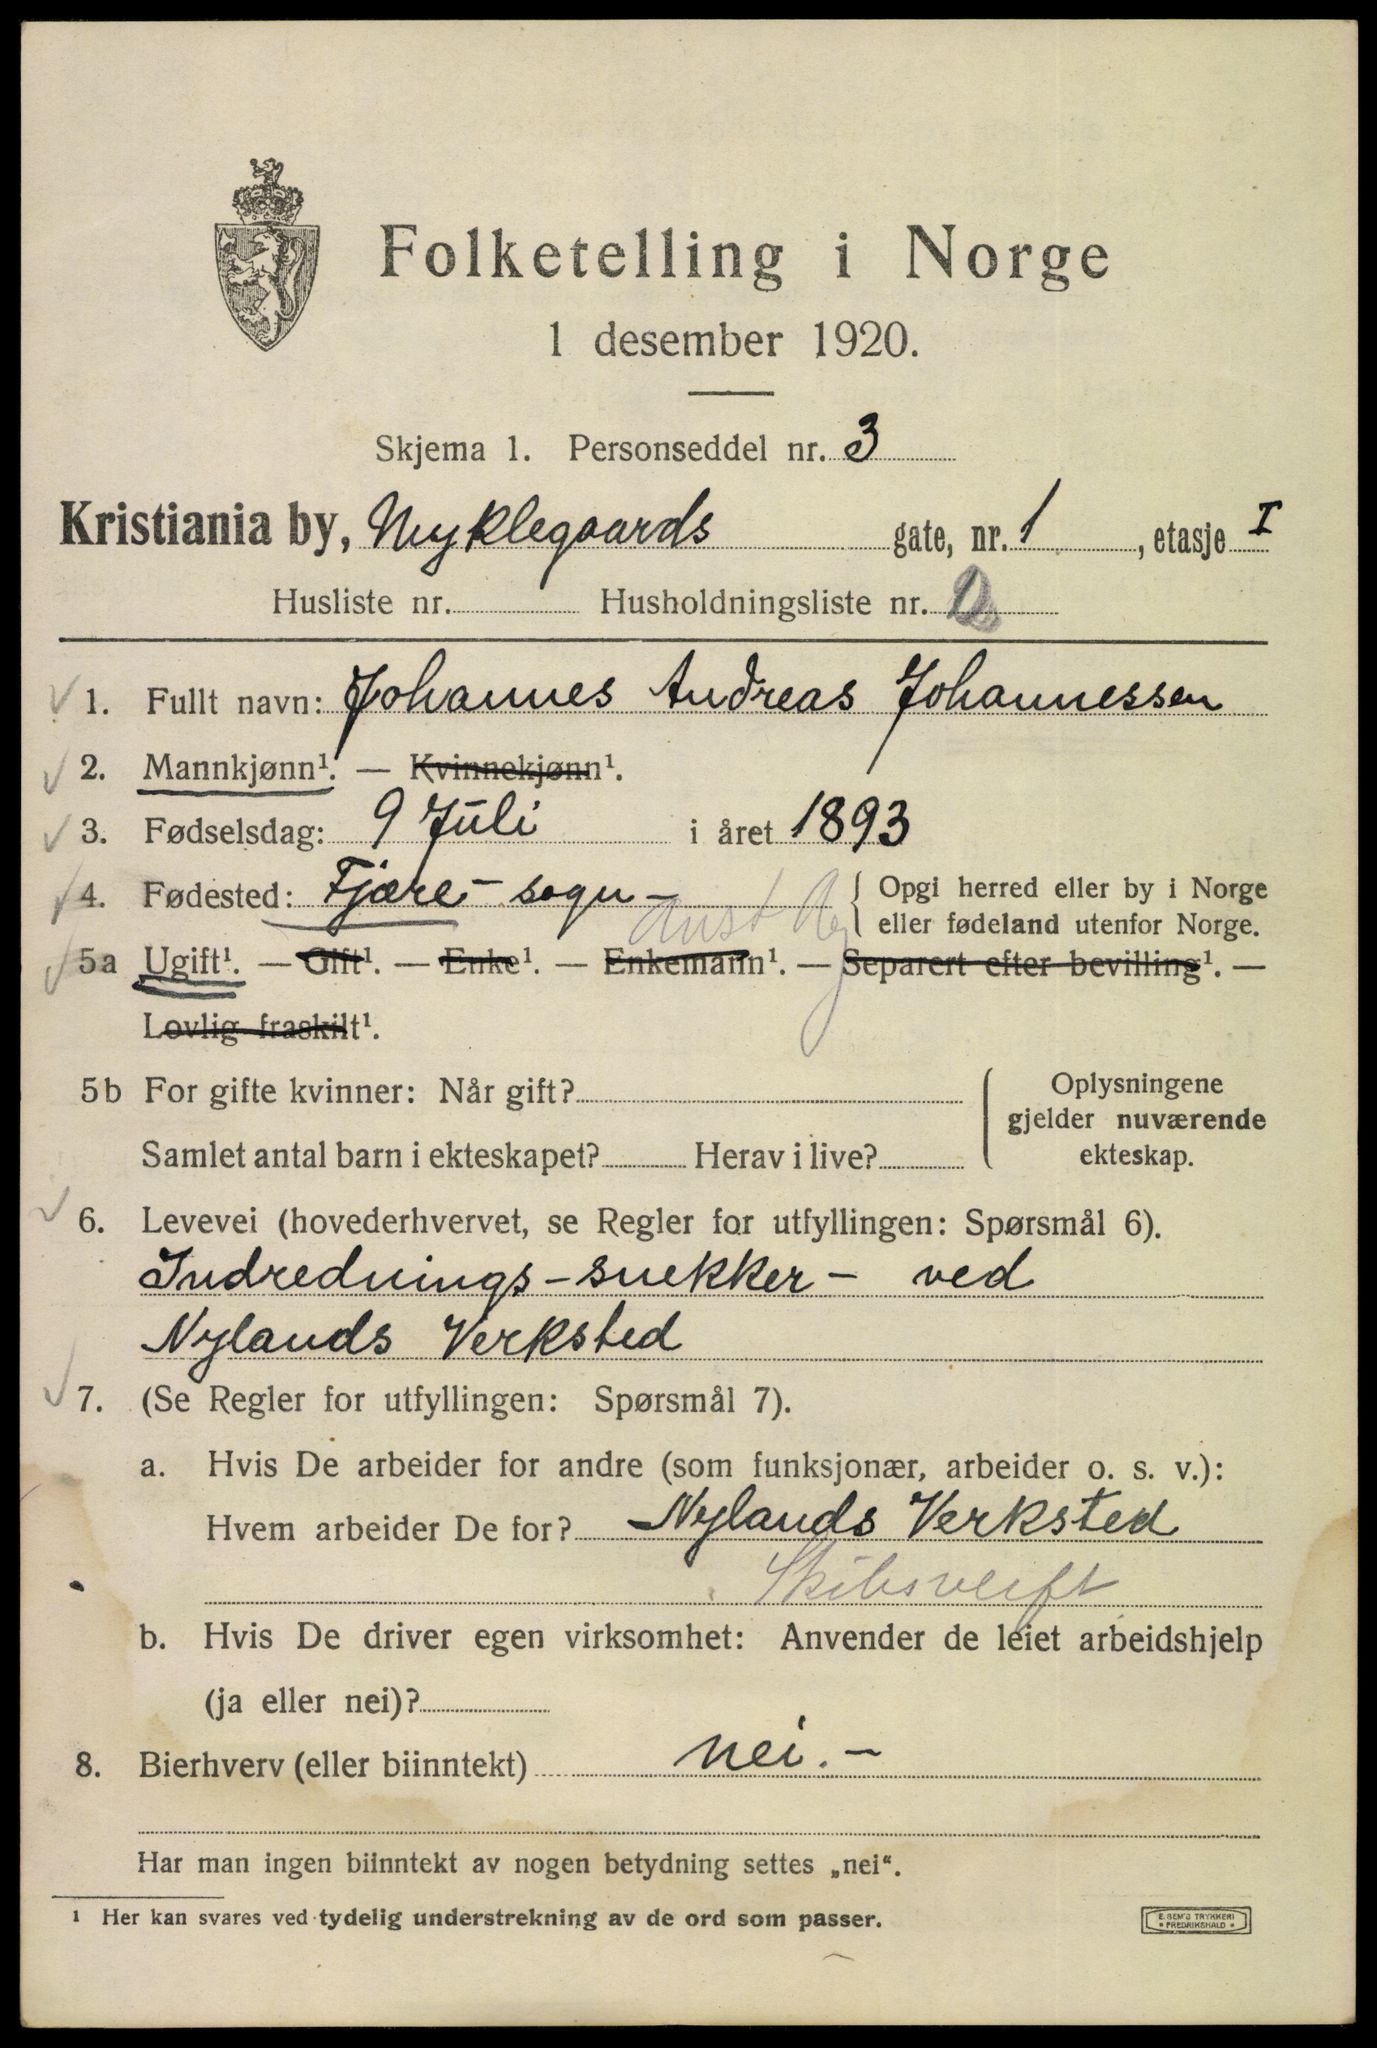 Folketelling i Norge
1 desember 1920.
Skjema 1. Personseddel nr. 3
Kristiania by, Nyklegaards gate, nr. 1, etasje I
Husliste nr. Husholdningsliste nr.
1. Fullt navn: Johannes Andreas Johannessen
2. Mannkjønn¹. — Kvinnekjønn¹.
3. Fødselsdag: 9 Juli i året 1893
4. Fødested: Fjære - sogn - { Opgi herred eller by i Norge
Aust Ag { eller fødeland utenfor Norge.
5a Ugift¹. — Gift¹. — Enke¹. — Enkemann¹. — Separert efter bevilling¹. —
Lovlig fraskilt¹.
5b For gifte kvinner: Når gift? Oplysningene
gjelder nuværende
Samlet antal barn i ekteskapet? Herav i live? ekteskap.
6. Levevei (hovederhvervet, se Regler for utfyllingen: Spørsmål 6).
Indrednings - snekker - ved
Nylands Verksted
7. (Se Regler for utfyllingen: Spørsmål 7).
a. Hvis De arbeider for andre (som funksjonær, arbeider o. s. v.):
Hvem arbeider De for? Nylands Verksted
Skibsverft
b. Hvis De driver egen virksomhet: Anvender de leiet arbeidshjelp
(ja eller nei)?
8. Bierhverv (eller biinntekt) nei. -
Har man ingen biinntekt av nogen betydning settes „nei“.
¹ Her kan svares ved tydelig understrekning av de ord som passer.
E. SEM'S TRYKKERI
* FREDRIKSHALD *